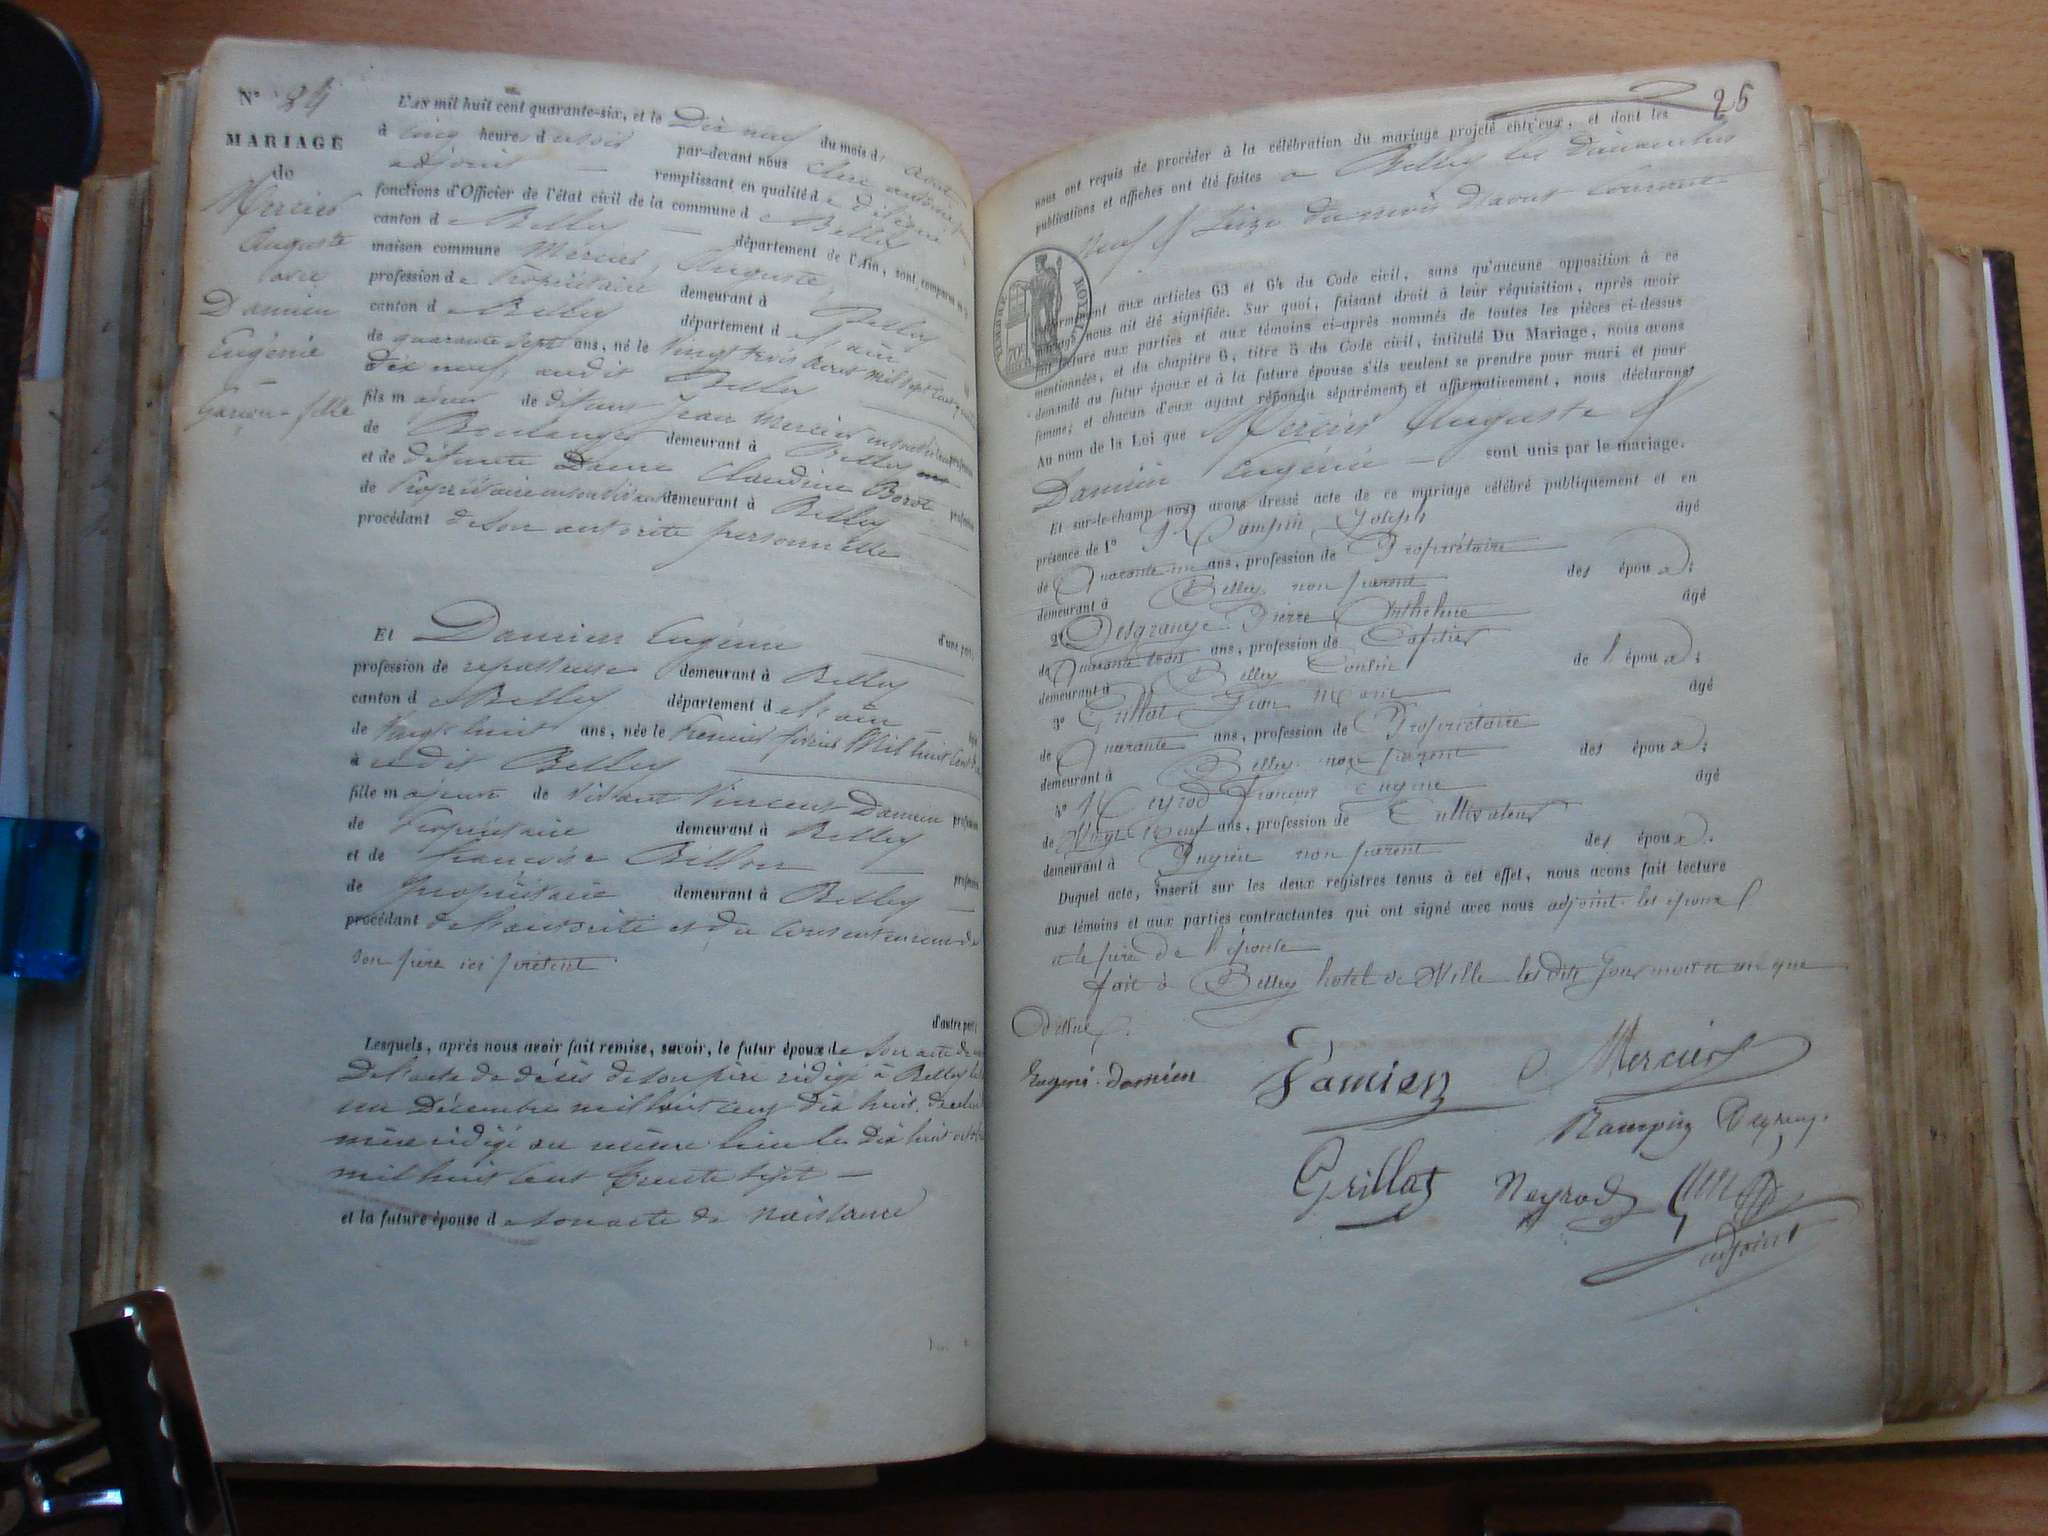 N° 24
MARIAGE
de
Mercier
Auguste
avec
Damien
Eugénie
Garçon - fille
L'AN mil huit cent quarante-six, et le Dix neuf du mois d'Aout
à Cinq heures du soir par-devant nous
adjoint remplissant en qualité de
fonctions d'Officier de l'état civil de la commune de Belley
canton de Belley département de l'Ain, sont comparus en la
maison commune Mercier, Auguste,
profession de Propriétaire demeurant à Belley
canton de Belley département de l'ain
de quarante Sept ans, né le Vingt trois Aout mil Sept Cent
dix neuf, audit Belley
fils majeur de défunt Jean Mercier
de Boulanger demeurant à Belley
et de défunte Dame Claudine Borot
de Propriétaire demeurant à Belley
procédant de son autorité personnelle
d'une part;
Et Damien Eugénie
profession de repasseuse demeurant à Belley
canton de Belley département de l'ain
de Vingt huit ans, née le Premier février Mil huit Cent
à udit Belley
fille majeure de vivant Vincent Damien profession
de Propriétaire demeurant à Belley
et de Françoise Billon profession
de Propriétaire demeurant à Belley
procédant de l'autorité et du Consentement de
Son père ici présent
d'autre part;
Lesquels, après nous avoir fait remise, savoir, le futur époux de Son acte de
De l'acte de décès de son père rédigé à Belley le
un Décembre mil huit cent dix huit, de celui
mère rédigé au même lieu les Dix huit
mil huit Cent trente Sept
et la future épouse de son acte de naissance
25
nous ont requis de procéder à la célébration du mariage projeté entr'eux, et dont les
publications et affiches ont été faites à Belley les dimanches
Neuf & Seize du mois d'aout Courant
TIMBRE ROYAL
conformément aux articles 63 et 64 du Code civil, sans qu'aucune opposition à ce
mariage nous ait été signifiée. Sur quoi, faisant droit à leur réquisition, après avoir
fait lecture aux parties et aux témoins ci-après nommés de toutes les pièces ci-dessus
mentionnées, et du chapitre 6, titre 5 du Code civil, intitulé Du Mariage, nous avons
demandé au futur époux et à la future épouse s'ils veulent se prendre pour mari et pour
femme; et chacun d'eux ayant répondu séparément et affirmativement, nous déclarons
Au nom de la Loi que Mercier Auguste &
Damien Eugénie sont unis par le mariage.
Et sur-le-champ nous avons dressé acte de ce mariage célébré publiquement et en
présence de 1° Rampin Joseph âgé
de Quarante un ans, profession de Propriétaire
demeurant à Belley non parent des époux;
2° Desgrange Pierre Anthelme âgé
de Quarante trois ans, profession de Cafetier
demeurant à Belley Cousin de l'époux;
3° Grillat Jean Marie âgé
de Quarante ans, profession de Propriétaire
demeurant à Belley non parent des époux;
4° Neyrod François Eugène âgé
de Vingt Neuf ans, profession de Cultivateur
demeurant à Pugieu non parent des époux.
Duquel acte, inscrit sur les deux registres tenus à cet effet, nous avons fait lecture
aux témoins et aux parties contractantes qui ont signé avec nous adjoint les époux
et le père de l'épouse
fait à Belley hotel de Ville les dits jour mois et an que
Dessus
Eugeni damien Damien Mercier
Rampin
Grillat Neyrod
adjoint